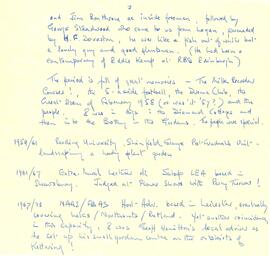 2
and Jim Banthorpe as inside foreman, followed by
George Standwood who came to us from Logan, preceded
by H.F. Dovaston, he was like a fish out of water but
a lovely guy and good plantsman. (He had been a
contemporary of Eddie Kemp at RBG Edinburgh)
The period is full of great memories – The Milk Recorder
Courses!, the 5-a-side football, the Drama Club, the
Great Storm of February 1958 (or was it '57?) and the
people. I was in digs: the Diamond Cottages and
then into the Bothy in the Gardens. The people were special.
1959/61 Reading University, Shinfield Grange Post-Graduate Unit -
landscaping a rocky plant garden
1961/67 Extra-mural Lecturer at Salop LEA based in
Shrewsbury. Judged at Flower Shows with Percy Thrower!
1967/78 NAAS/ADAS Hort. Adv. based in Leicester, eventually
covering Leics/Northants/Rutland. Yet another coincidence,
in this capacity I was Geoff Hamilton's local adviser as
he set up his small garden centre on the outskirts of
Kettering!